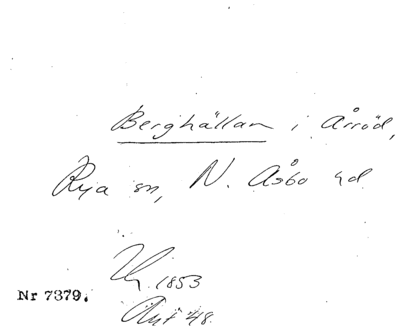 Berghällan i Årröd,
Rya sn, N. Åsbo hd
1853
Nr 7379.
Ant 48.